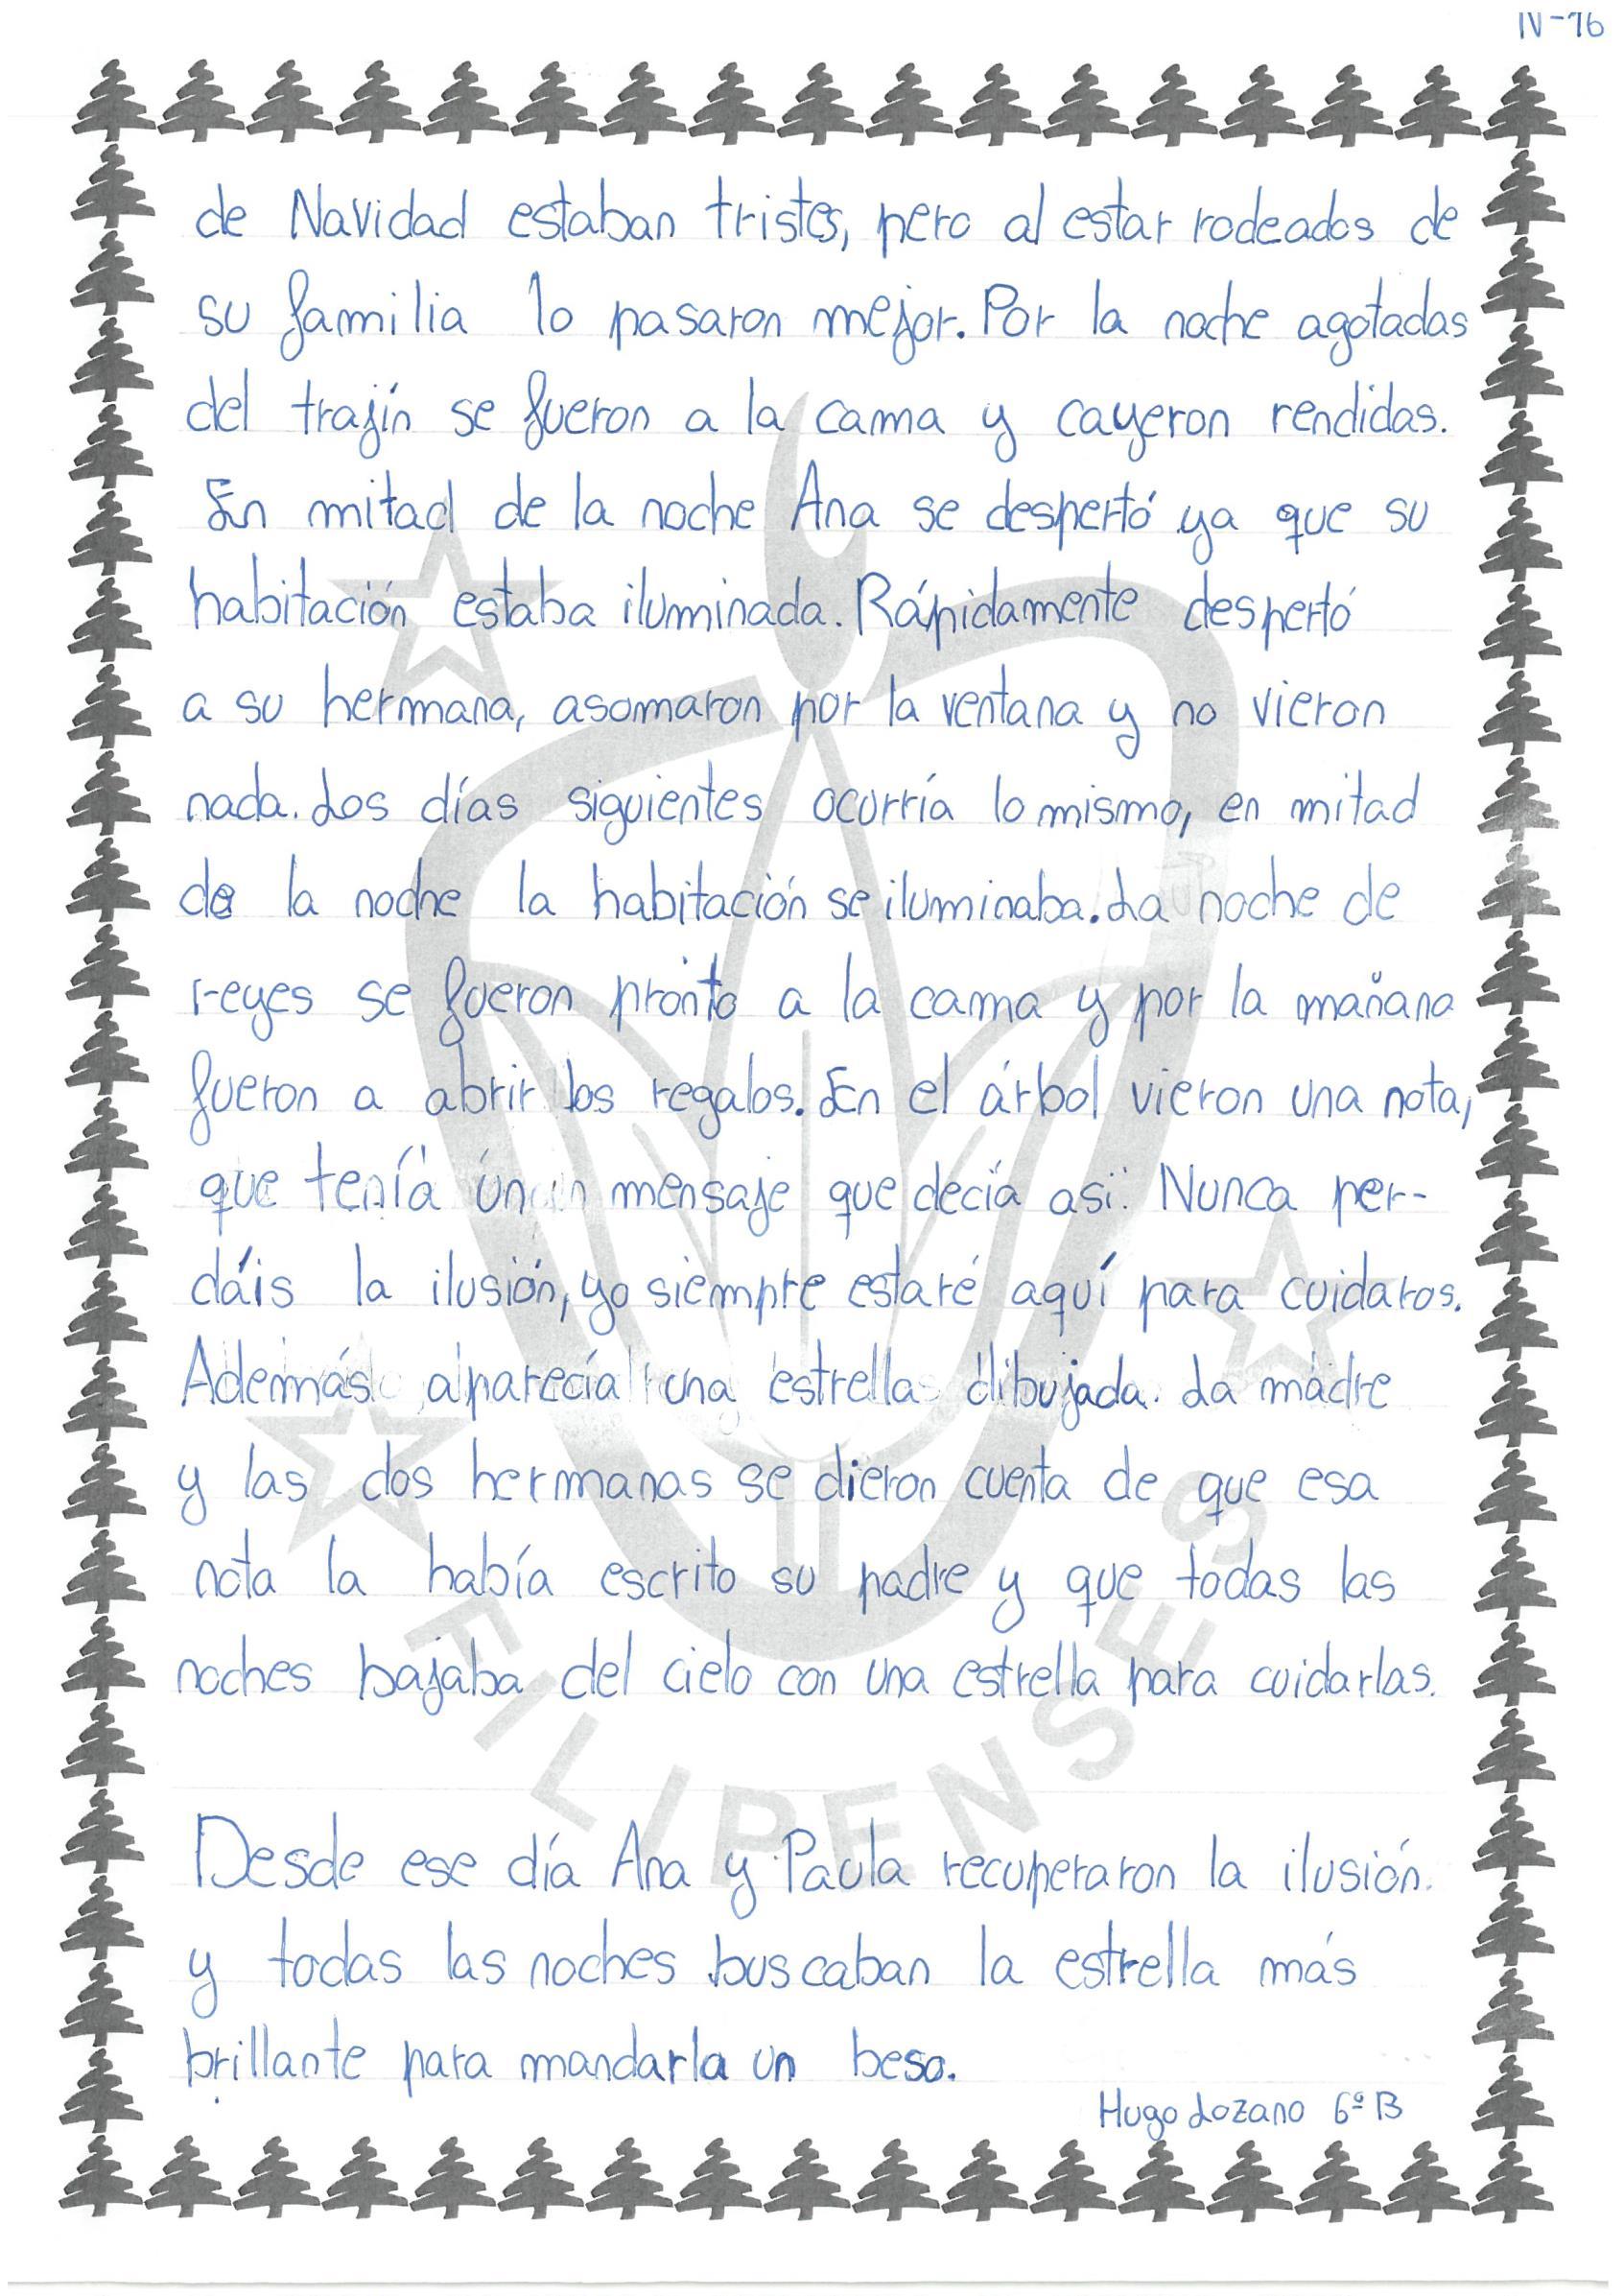 N-16
de Navidad estaban tristes, pero al estar rodeados de
su familia lo pasaron mejor. Por la noche agotadas
del trajín se fueron a la cama y cayeron rendidas.
En mitad de la noche Ana se despertó ya que su
habitación estaba iluminada. Rápidamente despertó
a su hermana, asomaron por la ventana y no vieron
nada. Los días siguientes ocurría lo mismo, en mitad
de la noche la habitación se iluminaba. La noche de
reyes se fueron pronto a la cama y por la mañana
fueron a abrir los regalos. En el árbol vieron una nota,
que tenía un mensaje que decía así: Nunca per-
dáis la ilusión, yo siempre estaré aquí para cuidaros.
Además aparecía una estrella dibujada. La madre
y las dos hermanas se dieron cuenta de que esa
nota la había escrito su padre y que todas las
noches bajaba del cielo con una estrella para cuidarlas.
FILIPENSES
Desde ese día Ana y Paula recuperaron la ilusión.
y todas las noches buscaban la estrella más
brillante para mandarla un beso.
Hugo Lozano 6º B